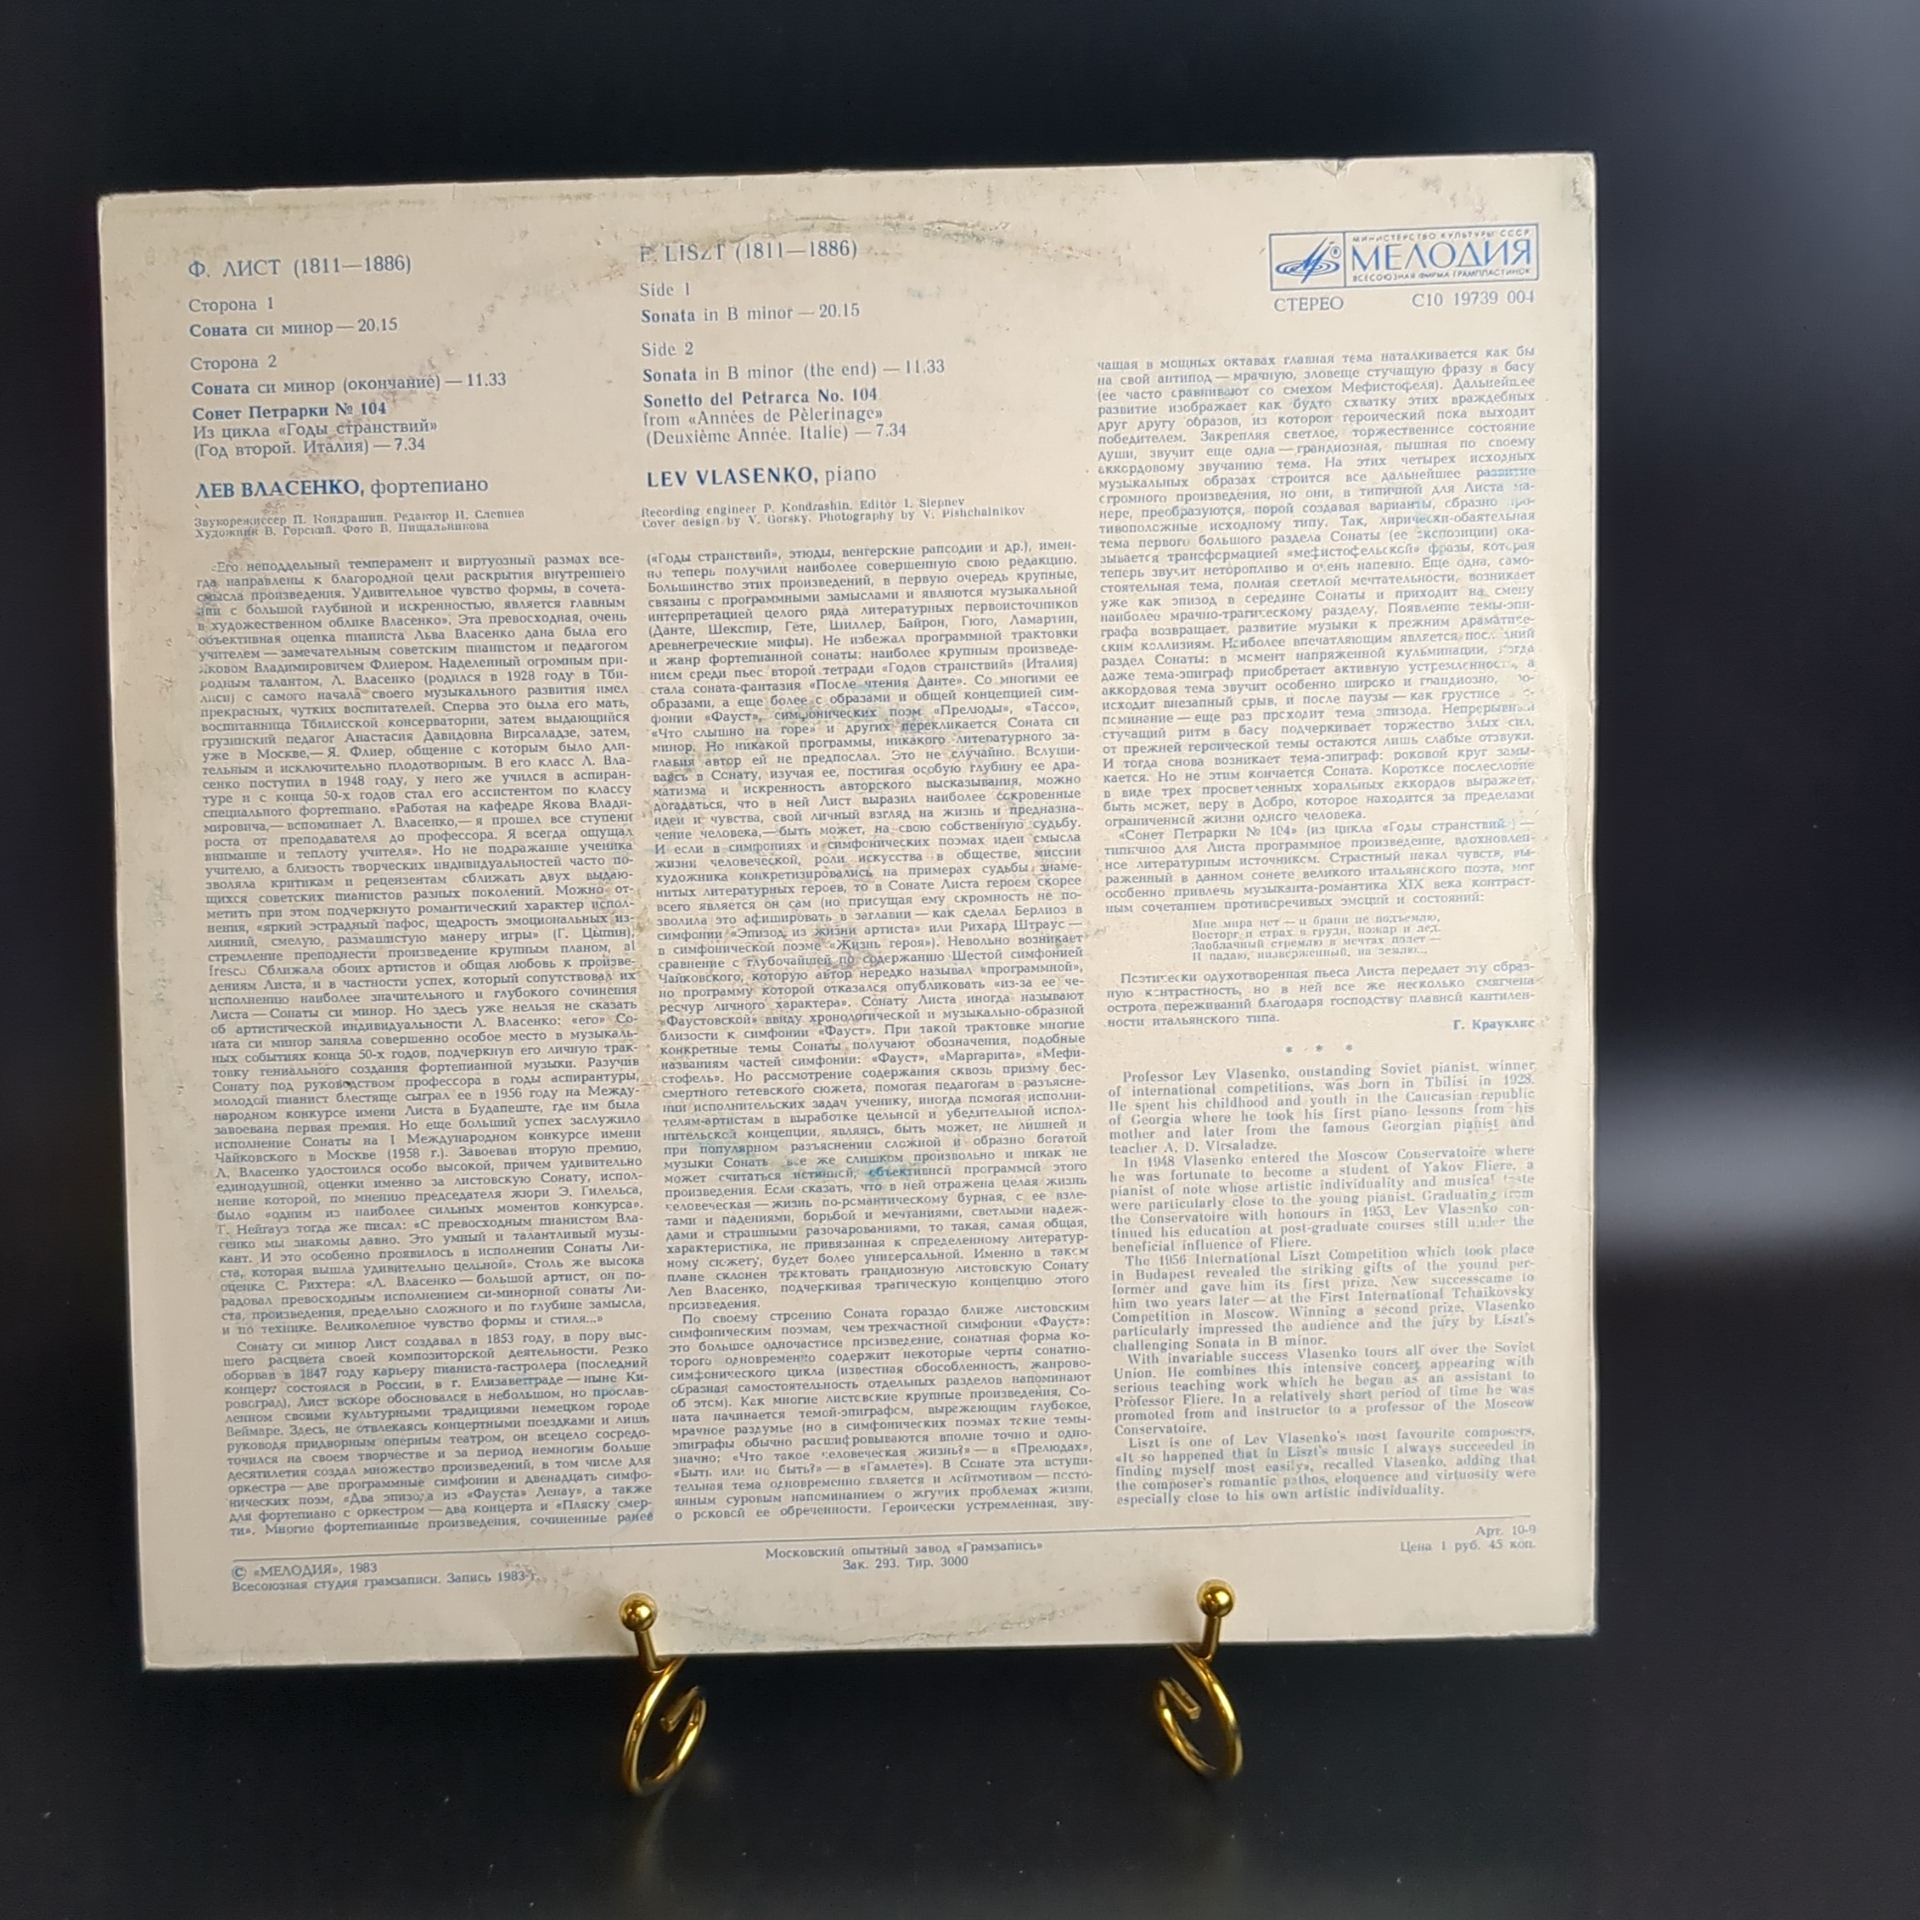 Ф. ЛИСТ (1811—1886)
Сторона 1
Соната си минор — 20.15
Сторона 2
Соната си минор (окончание) — 11.33
Сонет Петрарки № 104
Из цикла «Годы странствий»
(Год второй. Италия) — 7.34
ЛЕВ ВЛАСЕНКО, фортепиано
Звукорежиссер П. Кондрашин. Редактор И. Слепнев
Художник В. Горский. Фото В. Пищальникова
F. LISZT (1811—1886)
Side 1
Sonata in B minor — 20.15
Side 2
Sonata in B minor (the end) — 11.33
Sonetto del Petrarca No. 104
from «Années de Pèlerinage»
(Deuxième Année. Italie) — 7.34
LEV VLASENKO, piano
Recording engineer P. Kondrashin. Editor I. Slepnev
Cover design by V. Gorsky. Photography by V. Pishchalnikov
МИНИСТЕРСТВО КУЛЬТУРЫ СССР
МЕЛОДИЯ
ВСЕСОЮЗНАЯ ФИРМА ГРАМПЛАСТИНОК
СТЕРЕО С10 19739 004
«Его неподдельный темперамент и виртуозный размах все-
гда направлены к благородной цели раскрытия внутреннего
смысла произведения. Удивительное чувство формы, в сочета-
нии с большой глубиной и искренностью, является главным
в художественном облике Власенко». Эта превосходная, очень
объективная оценка пианиста Льва Власенко дана была его
учителем — замечательным советским пианистом и педагогом
Яковом Владимировичем Флиером. Наделенный огромным при-
родным талантом, Л. Власенко (родился в 1928 году в Тби-
лиси) с самого начала своего музыкального развития имел
прекрасных, чутких воспитателей. Сперва это была его мать,
воспитанница Тбилисской консерватории, затем выдающийся
грузинский педагог Анастасия Давидовна Вирсаладзе, затем,
уже в Москве,— Я. Флиер, общение с которым было дли-
тельным и исключительно плодотворным. В его класс Л. Вла-
сенко поступил в 1948 году, у него же учился в аспиран-
туре и с конца 50-х годов стал его ассистентом по классу
специального фортепиано. «Работая на кафедре Якова Влади-
мировича,— вспоминает Л. Власенко,— я прошел все ступени
роста от преподавателя до профессора. Я всегда ощущал
внимание и теплоту учителя». Но не подражание ученика
учителю, а близость творческих индивидуальностей часто по-
зволяла критикам и рецензентам сближать двух выдаю-
щихся советских пианистов разных поколений. Можно от-
метить при этом подчеркнуто романтический характер испол-
нения, «яркий эстрадный пафос, щедрость эмоциональных из-
лияний, смелую, размашистую манеру игры» (Г. Цыпин),
стремление преподнести произведение крупным планом, al
fresco. Сближала обоих артистов и общая любовь к произве-
дениям Листа, и в частности успех, который сопутствовал их
исполнению наиболее значительного и глубокого сочинения
Листа — Сонаты си минор. Но здесь уже нельзя не сказать
об артистической индивидуальности Л. Власенко: «его» Со-
ната си минор заняла совершенно особое место в музыкаль-
ных событиях конца 50-х годов, подчеркнув его личную трак-
товку гениального создания фортепианной музыки. Разучив
Сонату под руководством профессора в годы аспирантуры,
молодой пианист блестяще сыграл ее в 1956 году на Между-
народном конкурсе имени Листа в Будапеште, где им была
завоевана первая премия. Но еще больший успех заслужило
исполнение Сонаты на I Международном конкурсе имени
Чайковского в Москве (1958 г.). Завоевав вторую премию,
Л. Власенко удостоился особо высокой, причем удивительно
единодушной, оценки именно за листовскую Сонату, испол-
нение которой, по мнению председателя жюри Э. Гилельса,
было «одним из наиболее сильных моментов конкурса».
Г. Нейгауз тогда же писал: «С превосходным пианистом Вла-
сенко мы знакомы давно. Это умный и талантливый музы-
кант. И это особенно проявилось в исполнении Сонаты Ли-
ста, которая вышла удивительно цельной». Столь же высока
оценка С. Рихтера: «Л. Власенко — большой артист, он по-
радовал превосходным исполнением си-минорной сонаты Ли-
ста, произведения, предельно сложного и по глубине замысла,
и по технике. Великолепное чувство формы и стиля...»
Сонату си минор Лист создавал в 1853 году, в пору выс-
шего расцвета своей композиторской деятельности. Резко
оборвав в 1847 году карьеру пианиста-гастролера (последний
концерт состоялся в России, в г. Елизаветграде — ныне Ки-
ровоград), Лист вскоре обосновался в небольшом, но прослав-
ленном своими культурными традициями немецком городе
Веймаре. Здесь, не отвлекаясь концертными поездками и лишь
руководя придворным оперным театром, он всецело сосредо-
точился на своем творчестве и за период немногим больше
десятилетия создал множество произведений, в том числе для
оркестра — две программные симфонии и двенадцать симфо-
нических поэм, «Два эпизода из «Фауста» Ленау», а также
для фортепиано с оркестром — два концерта и «Пляску смер-
ти». Многие фортепианные произведения, сочиненные ранее
(«Годы странствий», этюды, венгерские рапсодии и др.), имен-
но теперь получили наиболее совершенную свою редакцию.
Большинство этих произведений, в первую очередь крупные,
связаны с программными замыслами и являются музыкальной
интерпретацией целого ряда литературных первоисточников
(Данте, Шекспир, Гете, Шиллер, Байрон, Гюго, Ламартин,
древнегреческие мифы). Не избежал программной трактовки
и жанр фортепианной сонаты: наиболее крупным произведе-
нием среди пьес второй тетради «Годов странствий» (Италия)
стала соната-фантазия «После чтения Данте». Со многими ее
образами, а еще более с образами и общей концепцией сим-
фонии «Фауст», симфонических поэм «Прелюды», «Тассо»,
«Что слышно на горе» и других перекликается Соната си
минор. Но никакой программы, никакого литературного за-
главия автор ей не предпослал. Это не случайно. Вслуши-
ваясь в Сонату, изучая ее, постигая особую глубину ее дра-
матизма и искренность авторского высказывания, можно
догадаться, что в ней Лист выразил наиболее сокровенные
идеи и чувства, свой личный взгляд на жизнь и предназна-
чение человека,— быть может, на свою собственную судьбу.
И если в симфониях и симфонических поэмах идеи смысла
жизни человеческой, роли искусства в обществе, миссии
художника конкретизировались на примерах судьбы знаме-
нитых литературных героев, то в Сонате Листа героем скорее
всего является он сам (но присущая ему скромность не по-
зволила это афишировать в заглавии — как сделал Берлиоз в
симфонии «Эпизод из жизни артиста» или Рихард Штраус —
в симфонической поэме «Жизнь героя»). Невольно возникает
сравнение с глубочайшей по содержанию Шестой симфонией
Чайковского, которую автор нередко называл «программной»,
но программу которой отказался опубликовать «из-за ее че-
ресчур личного характера». Сонату Листа иногда называют
«Фаустовской» ввиду хронологической и музыкально-образной
близости к симфонии «Фауст». При такой трактовке многие
конкретные темы Сонаты получают обозначения, подобные
названиям частей симфонии: «Фауст», «Маргарита», «Мефи-
стофель». Но рассмотрение содержания сквозь призму бес-
смертного гетевского сюжета, помогая педагогам в разъясне-
нии исполнительских задач ученику, иногда помогая исполни-
телям-артистам в выработке цельной и убедительной испол-
нительской концепции, являясь, быть может, не лишней и
при популярном разъяснении сложной и образно богатой
музыки Сонаты все же слишком произвольно и никак не
может считаться истинной, объективной программой этого
произведения. Если сказать, что в ней отражена целая жизнь
человеческая — жизнь по-романтическому бурная, с ее взле-
тами и падениями, борьбой и мечтаниями, светлыми надеж-
дами и страшными разочарованиями, то такая, самая общая,
характеристика, не привязанная к определенному литератур-
ному сюжету, будет более универсальной. Именно в таком
плане склонен трактовать грандиозную листовскую Сонату
Лев Власенко, подчеркивая трагическую концепцию этого
произведения.
По своему строению Соната гораздо ближе листовским
симфоническим поэмам, чем трехчастной симфонии «Фауст»:
это большое одночастное произведение, сонатная форма ко-
торого одновременно содержит некоторые черты сонатно-
симфонического цикла (известная обособленность, жанрово-
образная самостоятельность отдельных разделов напоминают
об этом). Как многие листовские крупные произведения, Со-
ната начинается темой-эпиграфом, выражающим глубокое,
мрачное раздумье (но в симфонических поэмах такие темы-
эпиграфы обычно расшифровываются вполне точно и одно-
значно: «Что такое человеческая жизнь?» — в «Прелюдах»,
«Быть или не быть?» — в «Гамлете»). В Сонате эта вступи-
тельная тема одновременно является и лейтмотивом — посто-
янным суровым напоминанием о жгучих проблемах жизни,
о роковой ее обреченности. Героически устремленная, зву-
чащая в мощных октавах главная тема наталкивается как бы
на свой антипод — мрачную, зловеще стучащую фразу в басу
(ее часто сравнивают со смехом Мефистофеля). Дальнейшее
развитие изображает как будто схватку этих враждебных
друг другу образов, из которой героический пока выходит
победителем. Закрепляя светлое, торжественное состояние
души, звучит еще одна — грандиозная, пышная по своему
аккордовому звучанию тема. На этих четырех исходных
музыкальных образах строится все дальнейшее развитие
огромного произведения, но они, в типичной для Листа ма-
нере, преобразуются, порой создавая варианты, образно про-
тивоположные исходному типу. Так, лирически-обаятельная
тема первого большого раздела Сонаты (ее экспозиции) ока-
зывается трансформацией «мефистофельской» фразы, которая
теперь звучит неторопливо и очень напевно. Еще одна, само-
стоятельная тема, полная светлой мечтательности, возникает
уже как эпизод в середине Сонаты и приходит на смену
наиболее мрачно-трагическому разделу. Появление темы-эпи-
графа возвращает развитие музыки к прежним драматиче-
ским коллизиям. Наиболее впечатляющим является последний
раздел Сонаты: в момент напряженной кульминации, когда
даже тема-эпиграф приобретает активную устремленность, а
аккордовая тема звучит особенно широко и грандиозно, про-
исходит внезапный срыв, и после паузы — как грустное
поминание — еще раз проходит тема эпизода. Непрерывный
стучащий ритм в басу подчеркивает торжество злых сил,
от прежней героической темы остаются лишь слабые отзвуки.
И тогда снова возникает тема-эпиграф: роковой круг замы-
кается. Но не этим кончается Соната. Короткое послесловие
в виде трех просветленных хоральных аккордов выражает,
быть может, веру в Добро, которое находится за пределами
ограниченной жизни одного человека.
«Сонет Петрарки № 104» (из цикла «Годы странствий») —
типичное для Листа программное произведение, вдохновлен-
ное литературным источником. Страстный накал чувств, вы-
раженный в данном сонете великого итальянского поэта, мог
особенно привлечь музыканта-романтика XIX века контраст-
ным сочетанием противоречивых эмоций и состояний:
Мне мира нет — и брани не подъемлю,
Восторг и страх в груди, пожар и лед.
Заоблачный стремлю в мечтах полет —
И падаю, низверженный, на землю...
Поэтически одухотворенная пьеса Листа передает эту образ-
ную контрастность, но в ней все же несколько смягчена
острота переживаний благодаря господству плавной кантилен-
ности итальянского типа.
Г. Крауклис
* * *
Professor Lev Vlasenko, oustanding Soviet pianist, winner
of international competitions, was born in Tbilisi in 1928.
He spent his childhood and youth in the Caucasian republic
of Georgia where he took his first piano lessons from his
mother and later from the famous Georgian pianist and
teacher A. D. Virsaladze.
In 1948 Vlasenko entered the Moscow Conservatoire where
he was fortunate to become a student of Yakov Fliere, a
pianist of note whose artistic individuality and musical taste
were particularly close to the young pianist. Graduating from
the Conservatoire with honours in 1953, Lev Vlasenko con-
tinued his education at post-graduate courses still under the
beneficial influence of Fliere.
The 1956 International Liszt Competition which took place
in Budapest revealed the striking gifts of the young per-
former and gave him its first prize. New successcame to
him two years later — at the First International Tchaikovsky
Competition in Moscow. Winning a second prize, Vlasenko
particularly impressed the audience and the jury by Liszt's
challenging Sonata in B minor.
With invariable success Vlasenko tours all over the Soviet
Union. He combines this intensive concert appearing with
serious teaching work which he began as an assistant to
Professor Fliere. In a relatively short period of time he was
promoted from and instructor to a professor of the Moscow
Conservatoire.
Liszt is one of Lev Vlasenko's most favourite composers.
«It so happened that in Liszt's music I always succeeded in
finding myself most easily», recalled Vlasenko, adding that
the composer's romantic pathos, eloquence and virtuosity were
especially close to his own artistic individuality.
© «МЕЛОДИЯ», 1983
Всесоюзная студия грамзаписи. Запись 1983 г.
Московский опытный завод «Грамзапись»
Зак. 293. Тир. 3000
Арт. 10-9
Цена 1 руб. 45 коп.